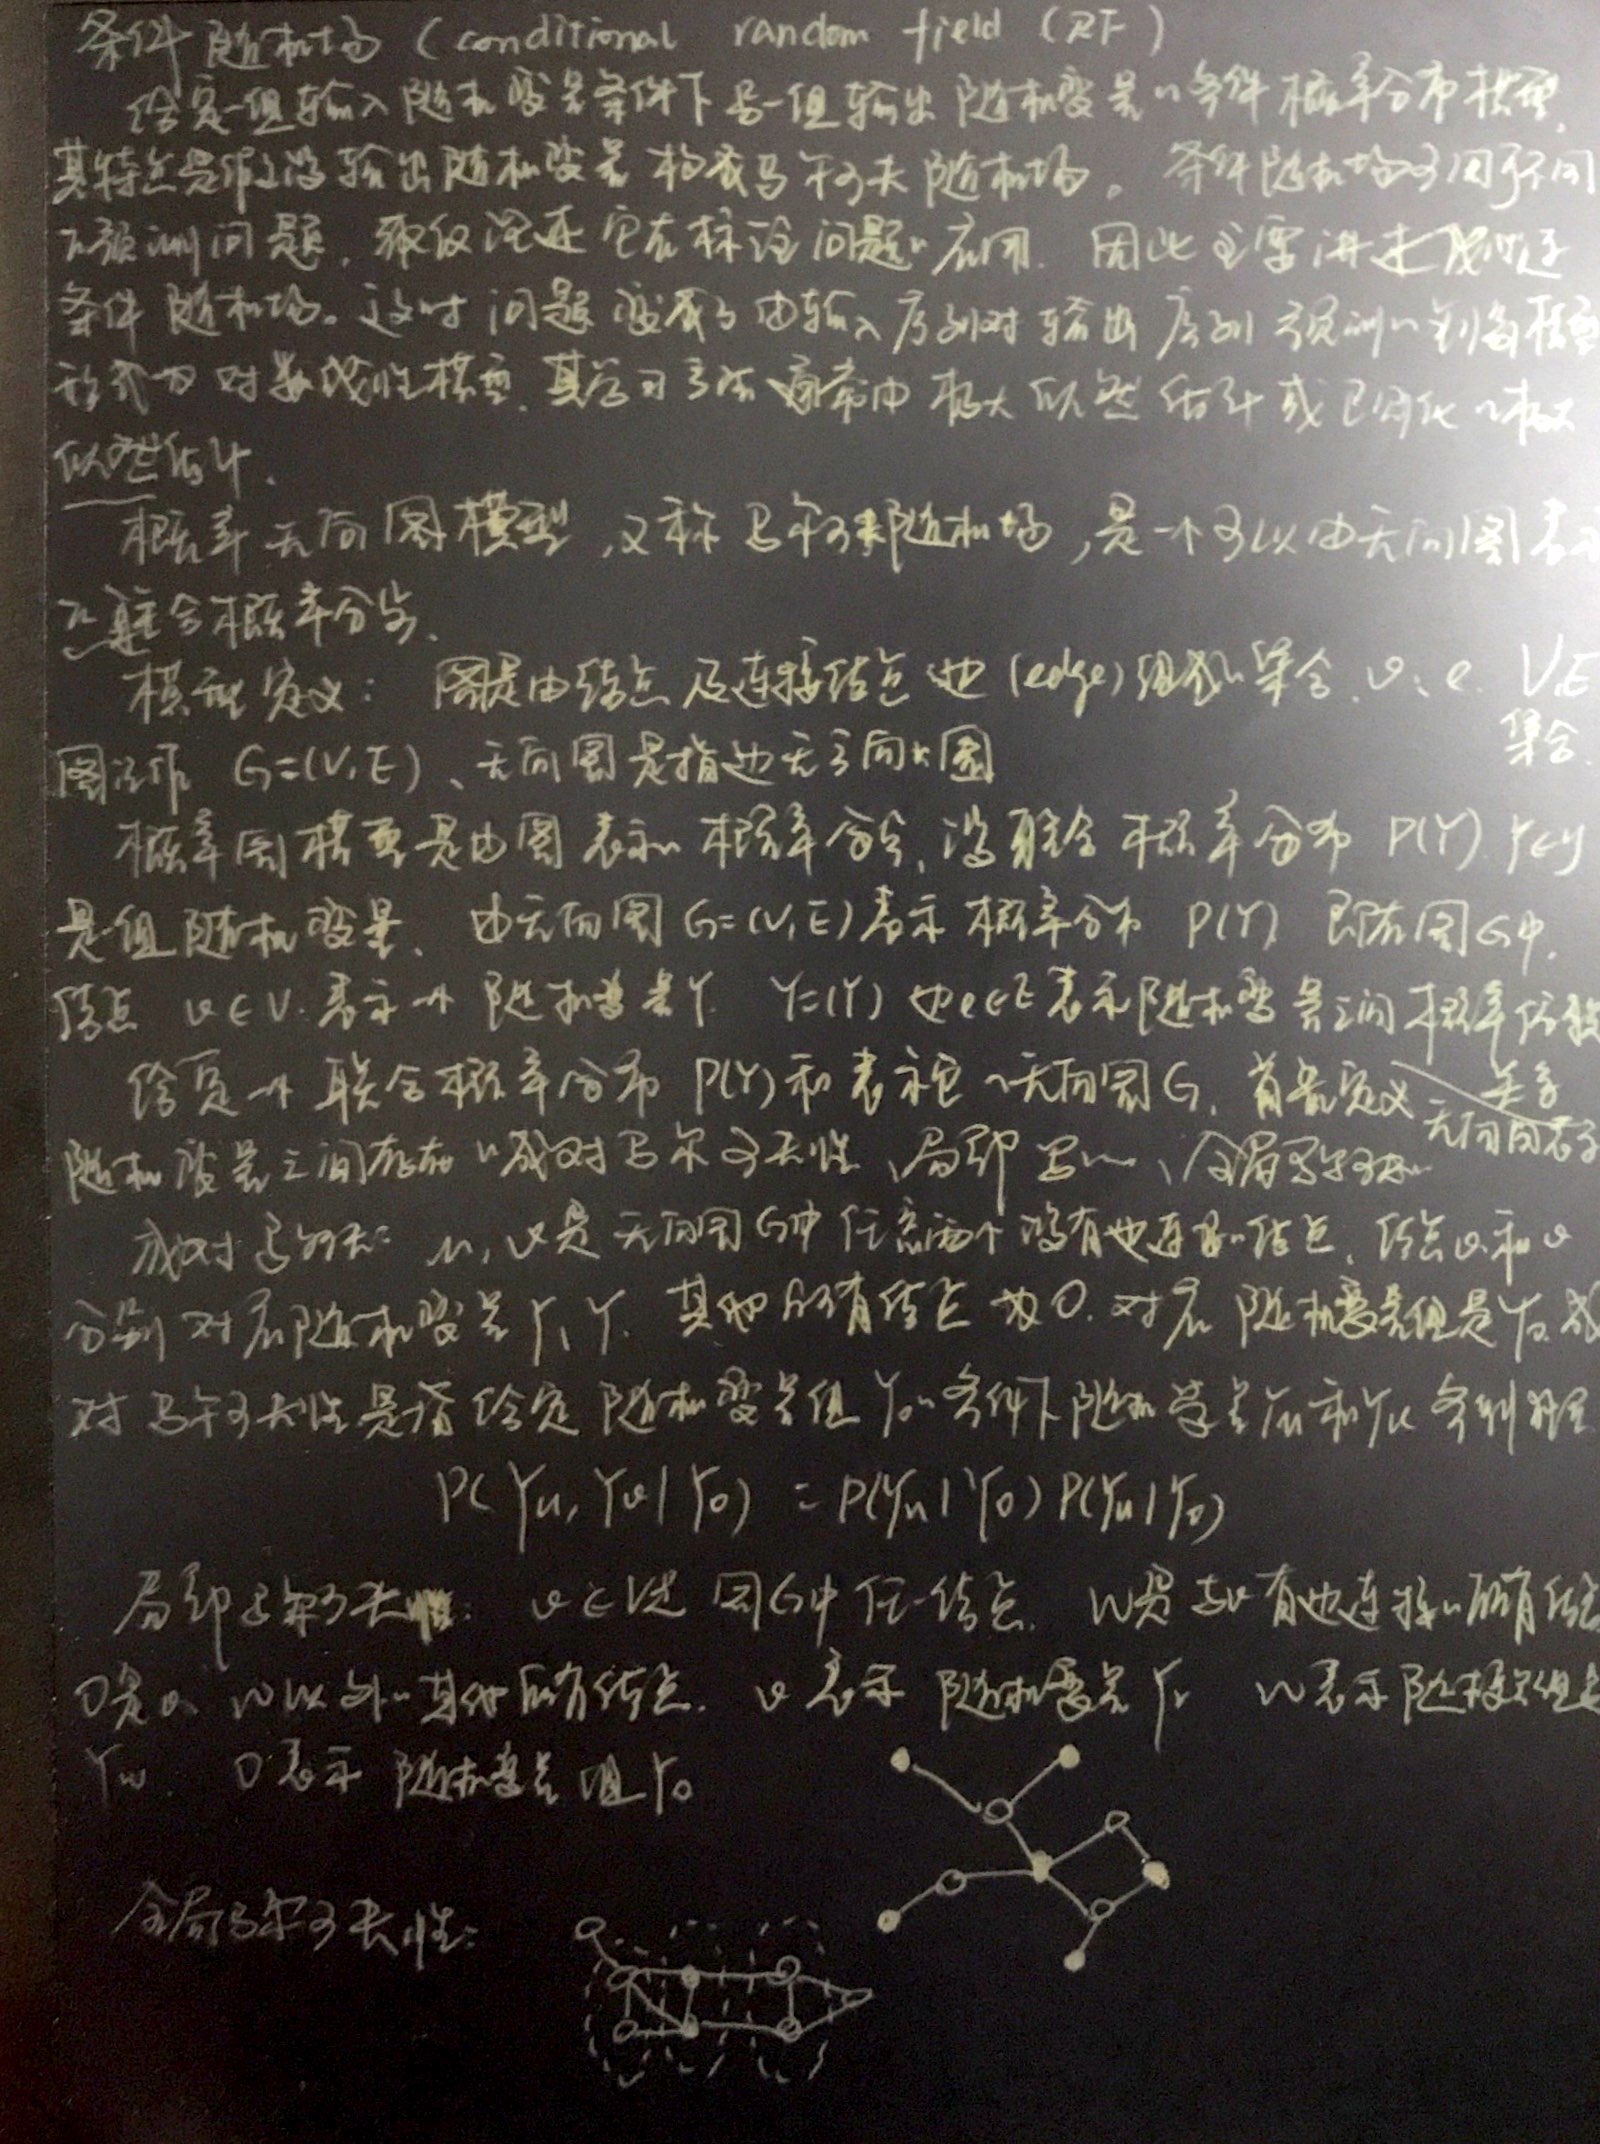 条件随机场 (conditional random field CRF)
给定一组输入随机变量条件下另一组输出随机变量的条件概率分布模型,
其特点是假设输出随机变量构成马尔可夫随机场。条件随机场可用于不同
的预测问题,仅论述它在标注问题的应用.因此主要讲述线性链
条件随机场。这时问题变成了由输入序列对输出序列预测的判别模型
形式为对数线性模型,其学习方法通常由极大似然估计或正则化的极大
似然估计.
概率无向图模型,又称马尔可夫随机场,是一个可以由无向图表示
的联合概率分布.
模型定义: 图是由结点及连接结点边(edge)组成的集合. v、e. V,E
集合.
图记作 G=(V,E)、无向图是指边无方向的图
概率图模型是由图表示的概率分布,设联合概率分布 P(Y), Y∈y
是一组随机变量、由无向图G=(V,E)表示概率分布 P(Y) 即在图G中,
结点 v∈V.表示一个随机变量Y. Y=(Y) 边e∈E表示随机变量之间概率依赖
关系
给定一个联合概率分布 P(Y)和表示它的无向图G,首先定义无向图表示
随机变量之间存在的成对马尔可夫性、局部马~、全局马尔可夫~
成对马尔可夫: u,v是无向图G中任意两个没有边连接的结点,结点u和v
分别对应随机变量Y,Y. 其他所有结点为O.对应随机变量组是Yo.成
对马尔可夫性是指给定随机变量组Yo的条件下随机变量Yu和Yv条件独立
P(Yu, Yv|Yo) = P(Yu|Yo)P(Yu|Yo)
局部马尔可夫性: v∈V是图G中任一结点. W是与v有边连接的所有结点
O是v、W以外的其他所有结点. v表示随机变量Yv W表示随机变量组是
Yw. O表示随机变量组Yo
全局马尔可夫性: